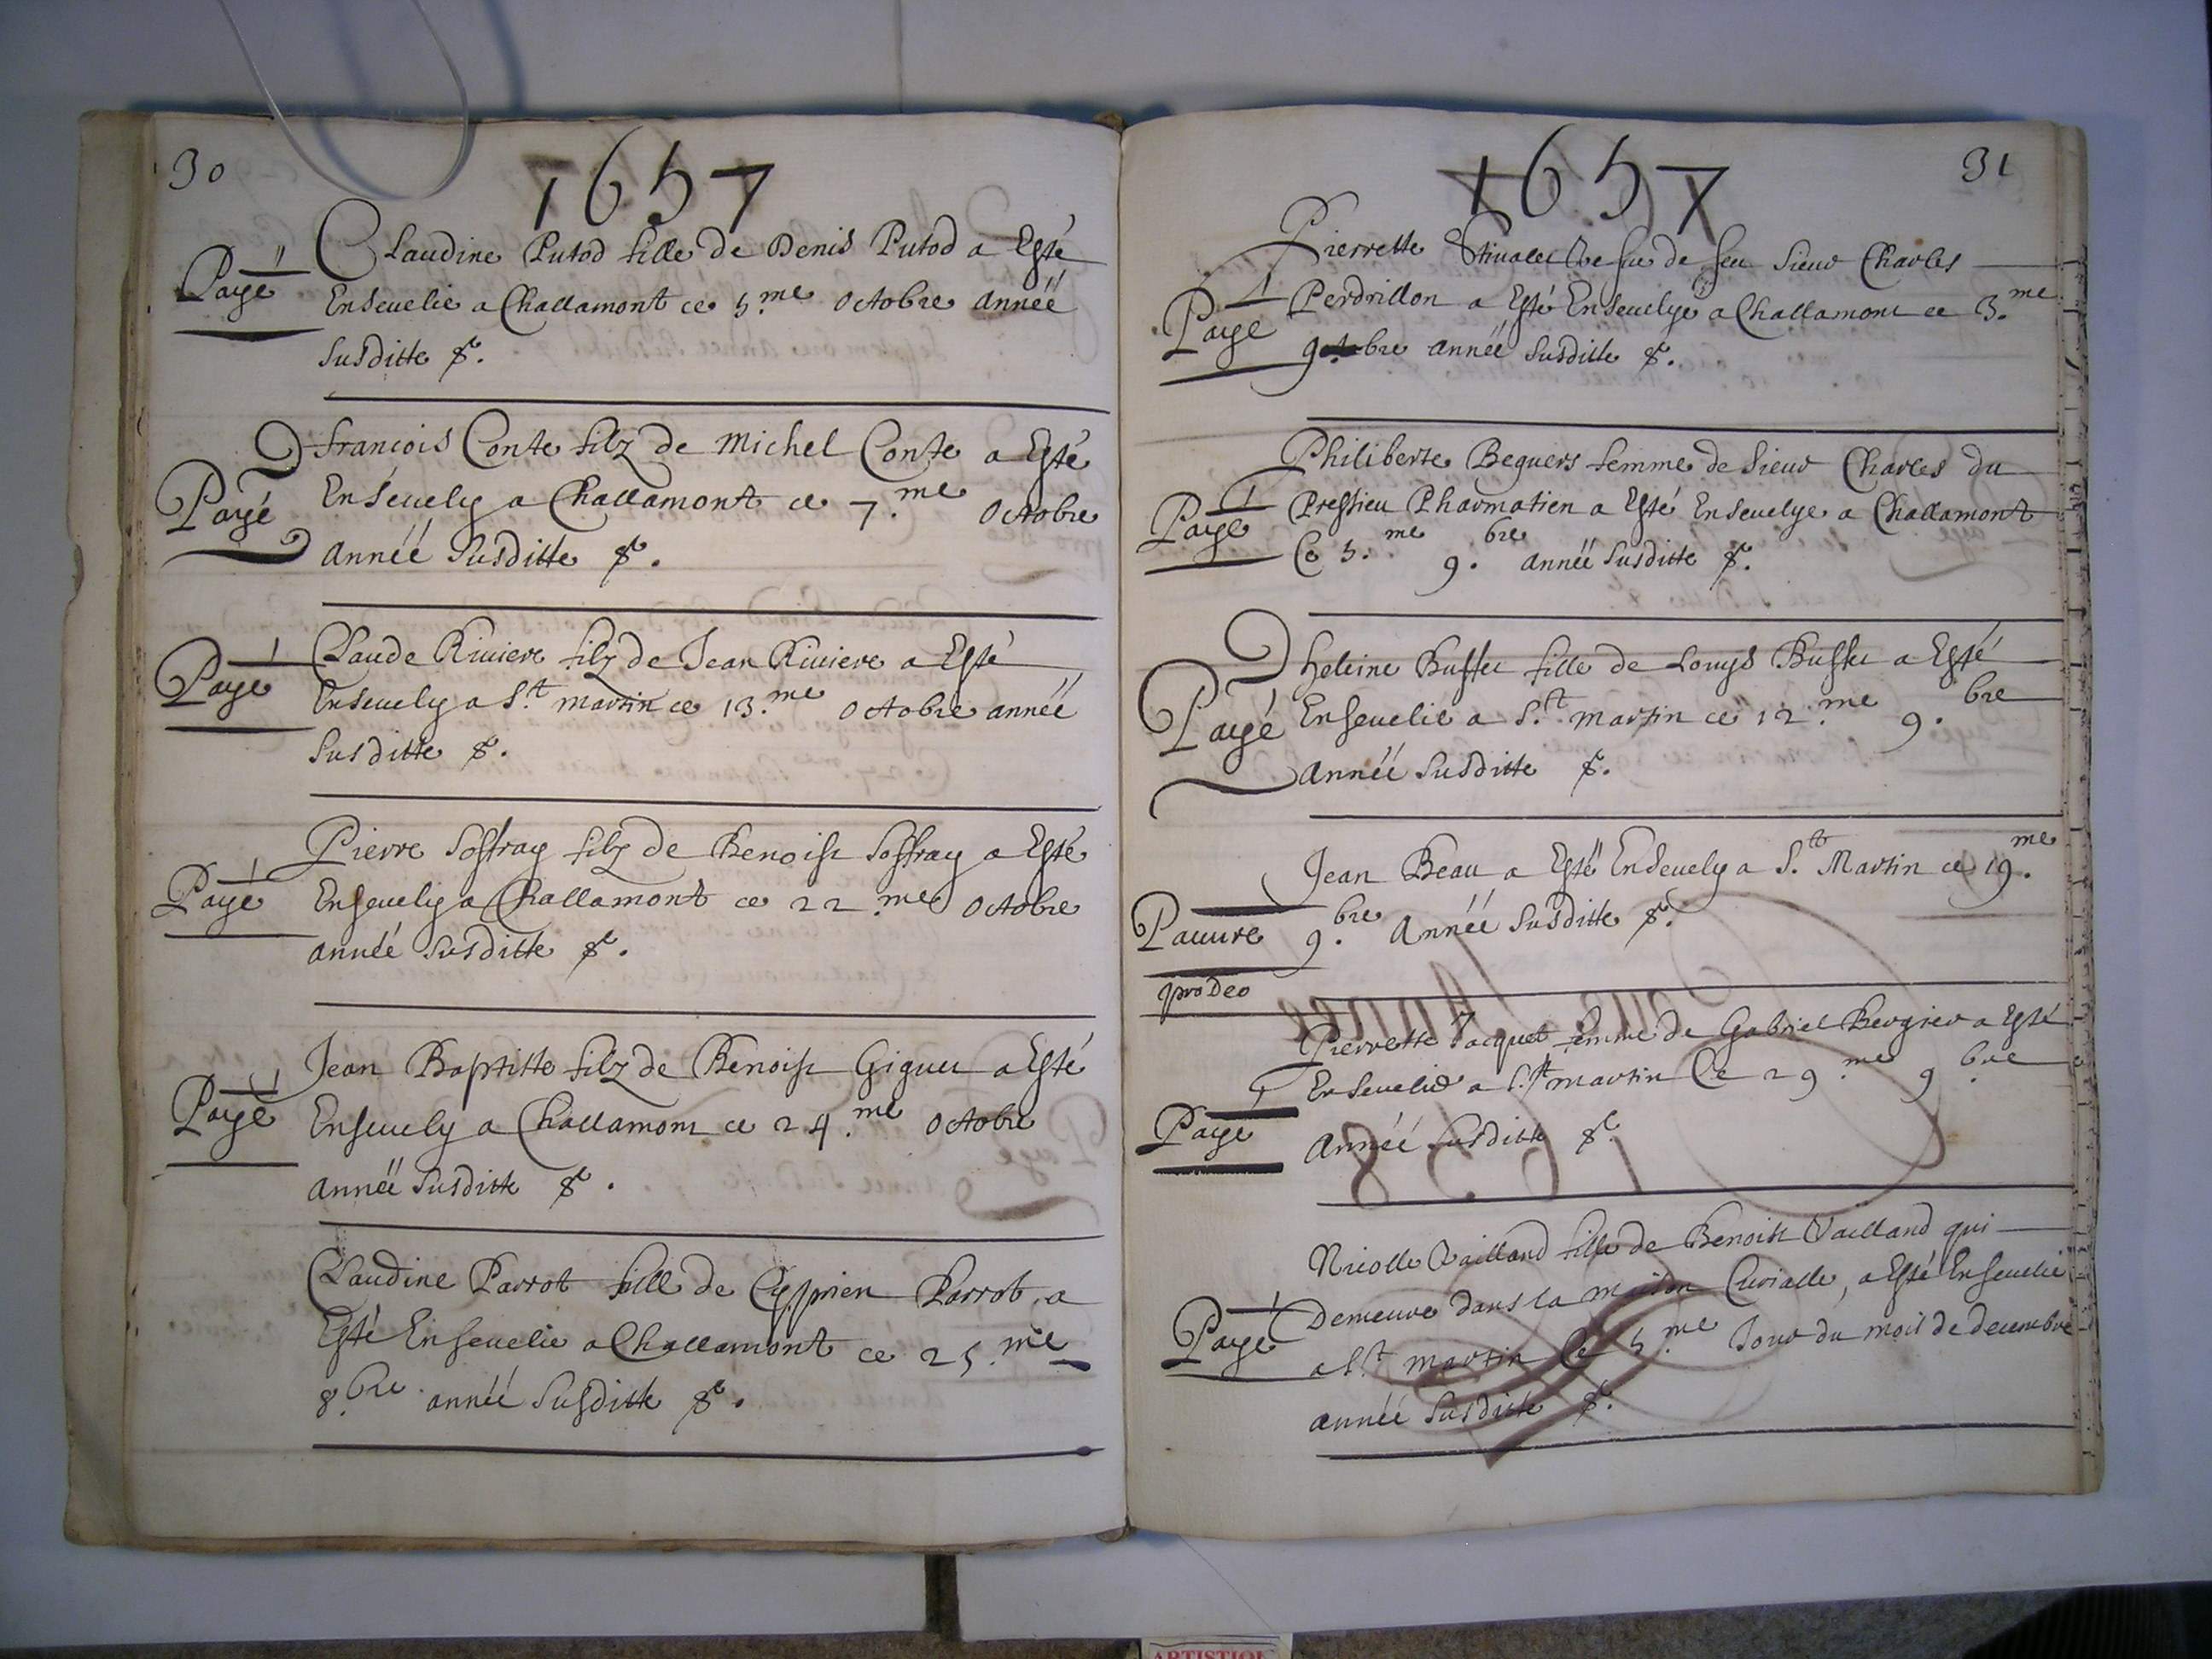 30
1657
Claudine Putod fille de Denis Putod a Esté
Payé
Enseuelie a Challamont ce 5.me Octobre année
susditte &c.
francois Conte filz de Michel Conte a Esté
Payé
Enseuely a Challamont ce 7.me Octobre
année susditte &c.
Claude Riuiere filz de Jean Riuiere a Esté
Payé
Enseuely a St. martin ce 13.me octobre année
susditte &c.
Pierre Soffray filz de Benoist Soffray a Esté
Payé
Enseuely a Challamont ce 22.me octobre
année susditte &c.
Jean Baptitte filz de Benoist Giguet a Esté
Payé
Enseuely a Challamont ce 24.me octobre
année susditte &c.
Claudine Parrot fille de Cyprien Parrot a
Esté Enseuelie a Challamont ce 25.me
8.bre année susditte &c.
31
1657
Pierrette de feu sieur Charles
Payé
Perdrillon a Esté Enseuelye a Challamont ce 3.me
9bre année susditte &c.
Philiberte Beguers femme de sieur Charles du
Payé
Pressieu Pharmatien a Esté Enseuelye a Challamont
Ce 5.me 9.bre année susditte &c.
heleine Buffet fille de Louys Buffet a Esté
Payé
Enseuelie a St. martin ce 12.me 9.bre
année susditte &c.
Jean Beau a Esté Enseuely a St. Martin ce 19.me
Pauure
9.bre Année susditte &c.
pro Deo
Pierrette Jacquet femme de Gabriel Bergier a Esté
Enseuelie a St. martin Ce 29.me 9.bre
Payé
Année susditte &c.
Nicolle Vailland fille de Benoist Vailland qui
Demeure dans la maison Curialle, a Esté Enseuelie
Payé
a St. martin Ce 5.me Jour du mois de decembre
année susditte &c.
ARTISTIQUE